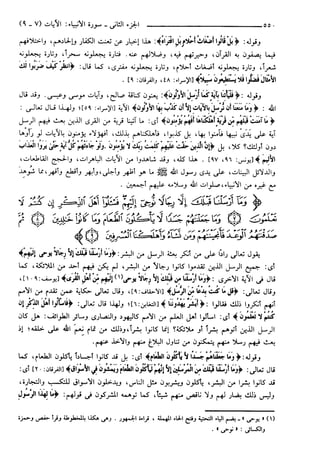 ٥٥٠ الجزء الثاني - سورة الأنبياء: الآيات (٧ - ٩)
وقوله: ﴿بَلْ قَالُوا أَضْغَاثُ أَحْلَامٍ بَلِ افْتَرَاهُ﴾: هذا إخبار عن تعنت الكفار وإلحادهم، واختلافهم
فيما يصفون به القرآن، وحيرتهم فيه، وضلالهم عنه. فتارة يجعلونه سحراً، وتارة يجعلونه
شعراً، وتارة يجعلونه أضغاث أحلام، وتارة يجعلونه مفترى، كما قال: ﴿انظُرْ كَيْفَ ضَرَبُوا لَكَ
الْأَمْثَالَ فَضَلُّوا فَلَا يَسْتَطِيعُونَ سَبِيلًا﴾ [الإسراء: ٤٨، والفرقان: ٩].
وقوله: ﴿فَلْيَأْتِنَا بِآيَةٍ كَمَا أُرْسِلَ الْأَوَّلُونَ﴾: يعنون كناقة صالح، وآيات موسى وعيسى. وقد قال
الله: ﴿وَمَا مَنَعَنَا أَن نُّرْسِلَ بِالْآيَاتِ إِلَّا أَن كَذَّبَ بِهَا الْأَوَّلُونَ﴾ الآية [الإسراء: ٥٩]؛ ولهذا قال تعالى:
﴿مَا آمَنَتْ قَبْلَهُم مِّن قَرْيَةٍ أَهْلَكْنَاهَا أَفَهُمْ يُؤْمِنُونَ﴾ أي: ما آتينا قرية من القرى الذين بعث فيهم الرسل
آية على يدي نبيها فآمنوا بها، بل كذبوا، فأهلكناهم بذلك، أفهؤلاء يؤمنون بالآيات لو رأوها
دون أولئك؟ كلا، بل ﴿إِنَّ الَّذِينَ حَقَّتْ عَلَيْهِمْ كَلِمَتُ رَبِّكَ لَا يُؤْمِنُونَ وَلَوْ جَاءَتْهُمْ كُلُّ آيَةٍ حَتَّىٰ يَرَوُا الْعَذَابَ
الْأَلِيمَ﴾ [يونس: ٩٦، ٩٧]. هذا كله، وقد شاهدوا من الآيات الباهرات، والحجج القاطعات،
والدلائل البينات، على يدي رسول الله ﷺ ما هو أظهر وأجلى، وأبهر وأقطع وأقهر، مما شُوهدَ
مع غيره من الأنبياء، صلوات الله وسلامه عليهم أجمعين.
﴿وَمَا أَرْسَلْنَا قَبْلَكَ إِلَّا رِجَالًا نُّوحِي إِلَيْهِمْ فَاسْأَلُوا أَهْلَ الذِّكْرِ إِن كُنتُمْ لَا
تَعْلَمُونَ وَمَا جَعَلْنَاهُمْ جَسَدًا لَّا يَأْكُلُونَ الطَّعَامَ وَمَا كَانُوا خَالِدِينَ ثُمَّ
صَدَقْنَاهُمُ الْوَعْدَ فَأَنجَيْنَاهُمْ وَمَن نَّشَاءُ وَأَهْلَكْنَا الْمُسْرِفِينَ﴾
يقول تعالى راداً على من أنكر بعثة الرسل من البشر: ﴿وَمَا أَرْسَلْنَا قَبْلَكَ إِلَّا رِجَالًا يوحي إِلَيْهِمْ﴾
أي: جميع الرسل الذين تقدموا كانوا رجالاً من البشر، لم يكن فيهم أحد من الملائكة، كما
قال في الآية الأخرى: ﴿وَمَا أَرْسَلْنَا مِن قَبْلِكَ إِلَّا رِجَالًا يوحى(١) إِلَيْهِم مِّنْ أَهْلِ الْقُرَىٰ﴾ [يوسف: ١٠٩]،
وقال تعالى: ﴿قُلْ مَا كُنتُ بِدْعًا مِّنَ الرُّسُلِ﴾ [الأحقاف: ٩]، وقال تعالى حكاية عمن تقدم من الأمم
أنهم أنكروا ذلك فقالوا: ﴿أَبَشَرٌ يَهْدُونَنَا﴾ [التغابن: ٦]؛ ولهذا قال تعالى: ﴿فَاسْأَلُوا أَهْلَ الذِّكْرِ إِن
كُنتُمْ لَا تَعْلَمُونَ﴾ أي: اسألوا أهل العلم من الأمم كاليهود والنصارى وسائر الطوائف: هل كان
الرسل الذين أتوهم بشراً أو ملائكة؟ إنما كانوا بشراً، وذلك من تمام نِعَم الله على خلقه؛ إذ
بعث فيهم رسلا منهم يتمكنون من تناول البلاغ منهم والأخذ عنهم.
وقوله: ﴿وَمَا جَعَلْنَاهُمْ جَسَدًا لَّا يَأْكُلُونَ الطَّعَامَ﴾ أي: بل قد كانوا أجساداً يأكلون الطعام، كما
قال تعالى: ﴿وَمَا أَرْسَلْنَا قَبْلَكَ مِنَ الْمُرْسَلِينَ إِلَّا إِنَّهُمْ لَيَأْكُلُونَ الطَّعَامَ وَيَمْشُونَ فِي الْأَسْوَاقِ﴾ [الفرقان: ٢٠] أي:
قد كانوا بشرا من البشر، يأكلون ويشربون مثل الناس، ويدخلون الأسواق للتكسب والتجارة،
وليس ذلك بضار لهم ولا ناقص منهم شيئاً، كما توهمه المشركون في قولهم: ﴿مَالِ هَٰذَا الرَّسُولِ
(١) ﴿يوحى﴾ - بضم الياء التحتية وفتح الحاء المهملة، قراءة الجمهور. وهي هكذا بالمخطوطة وقرأ حفص وحمزة
والكسائي: ﴿نوحي﴾.